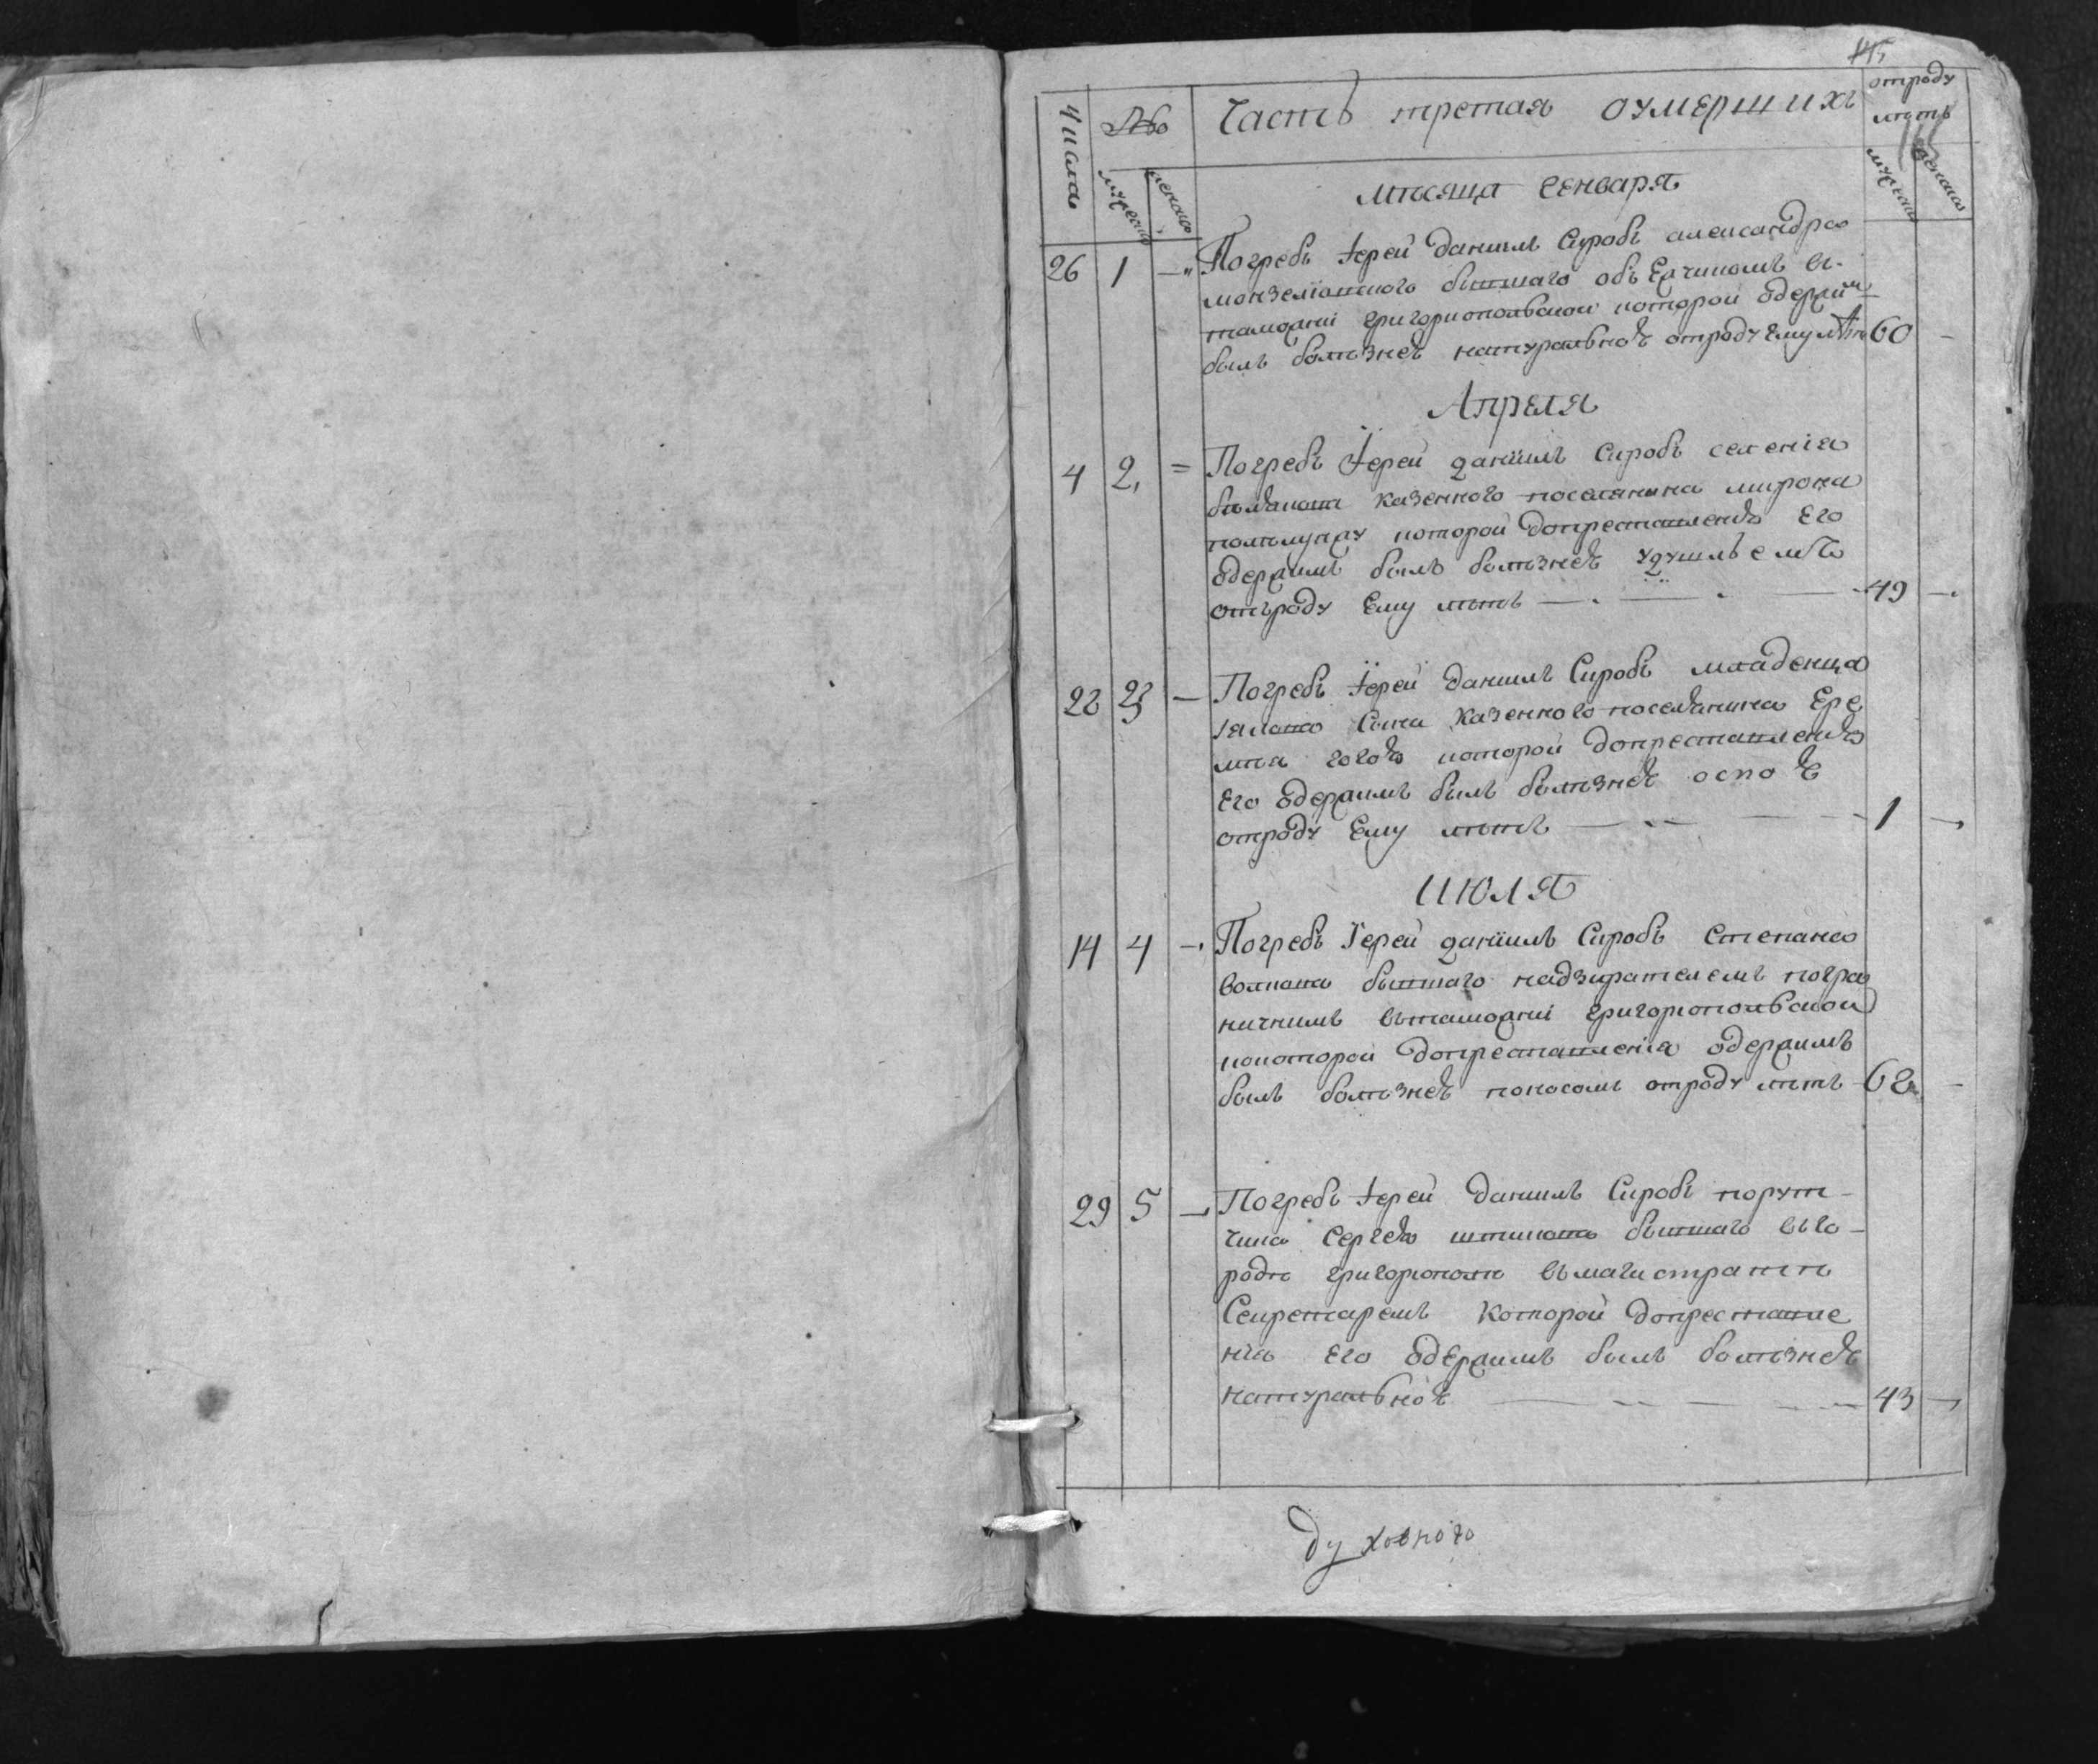 145
Числа
№
Часть третая оумершихъ
отроду
летъ
мужеска
женска
мужеска
женска
мѣсяца генваря
26 1 — Погребъ Іерей даниилъ Скробъ александра
бывшаго въ
таможни григориопольской которой одержим
былъ болѣзнею натуральною отроду ему лѣтъ 60 —
Апреля
4 2 = Погребъ Іерей даниилъ Скробъ селенія
казенного поселянина мирона
которой допреставленія Его
одержимъ былъ болѣзнею удушьемъ
отъроду Ему лѣтъ — 49 —
22 3 — Погребъ Іерей даниилъ Скробъ младенца
сына казенного поселянина Ере
мѣя которой допреставленія
Его одержимъ былъ болѣзнею оспою
отроду Ему лѣтъ — 1 —
ИЮЛЯ
14 4 — Погребъ Іерей даниилъ Скробъ Степана
волкова бывшаго надзирателемъ погра
ничнимъ вътаможни григориопольской
которой допреставленія одержимъ
былъ болѣзнею поносомъ отроду лѣтъ 62 —
29 5 — Погребъ Іерей даниилъ Скробъ порут-
чика Сергея бывшаго въго-
родѣ григориополѣ въмагистратѣ
Секретаремъ которой допреставле
нія Его одержимъ былъ болѣзнею
натуральною — 43 —
духовного